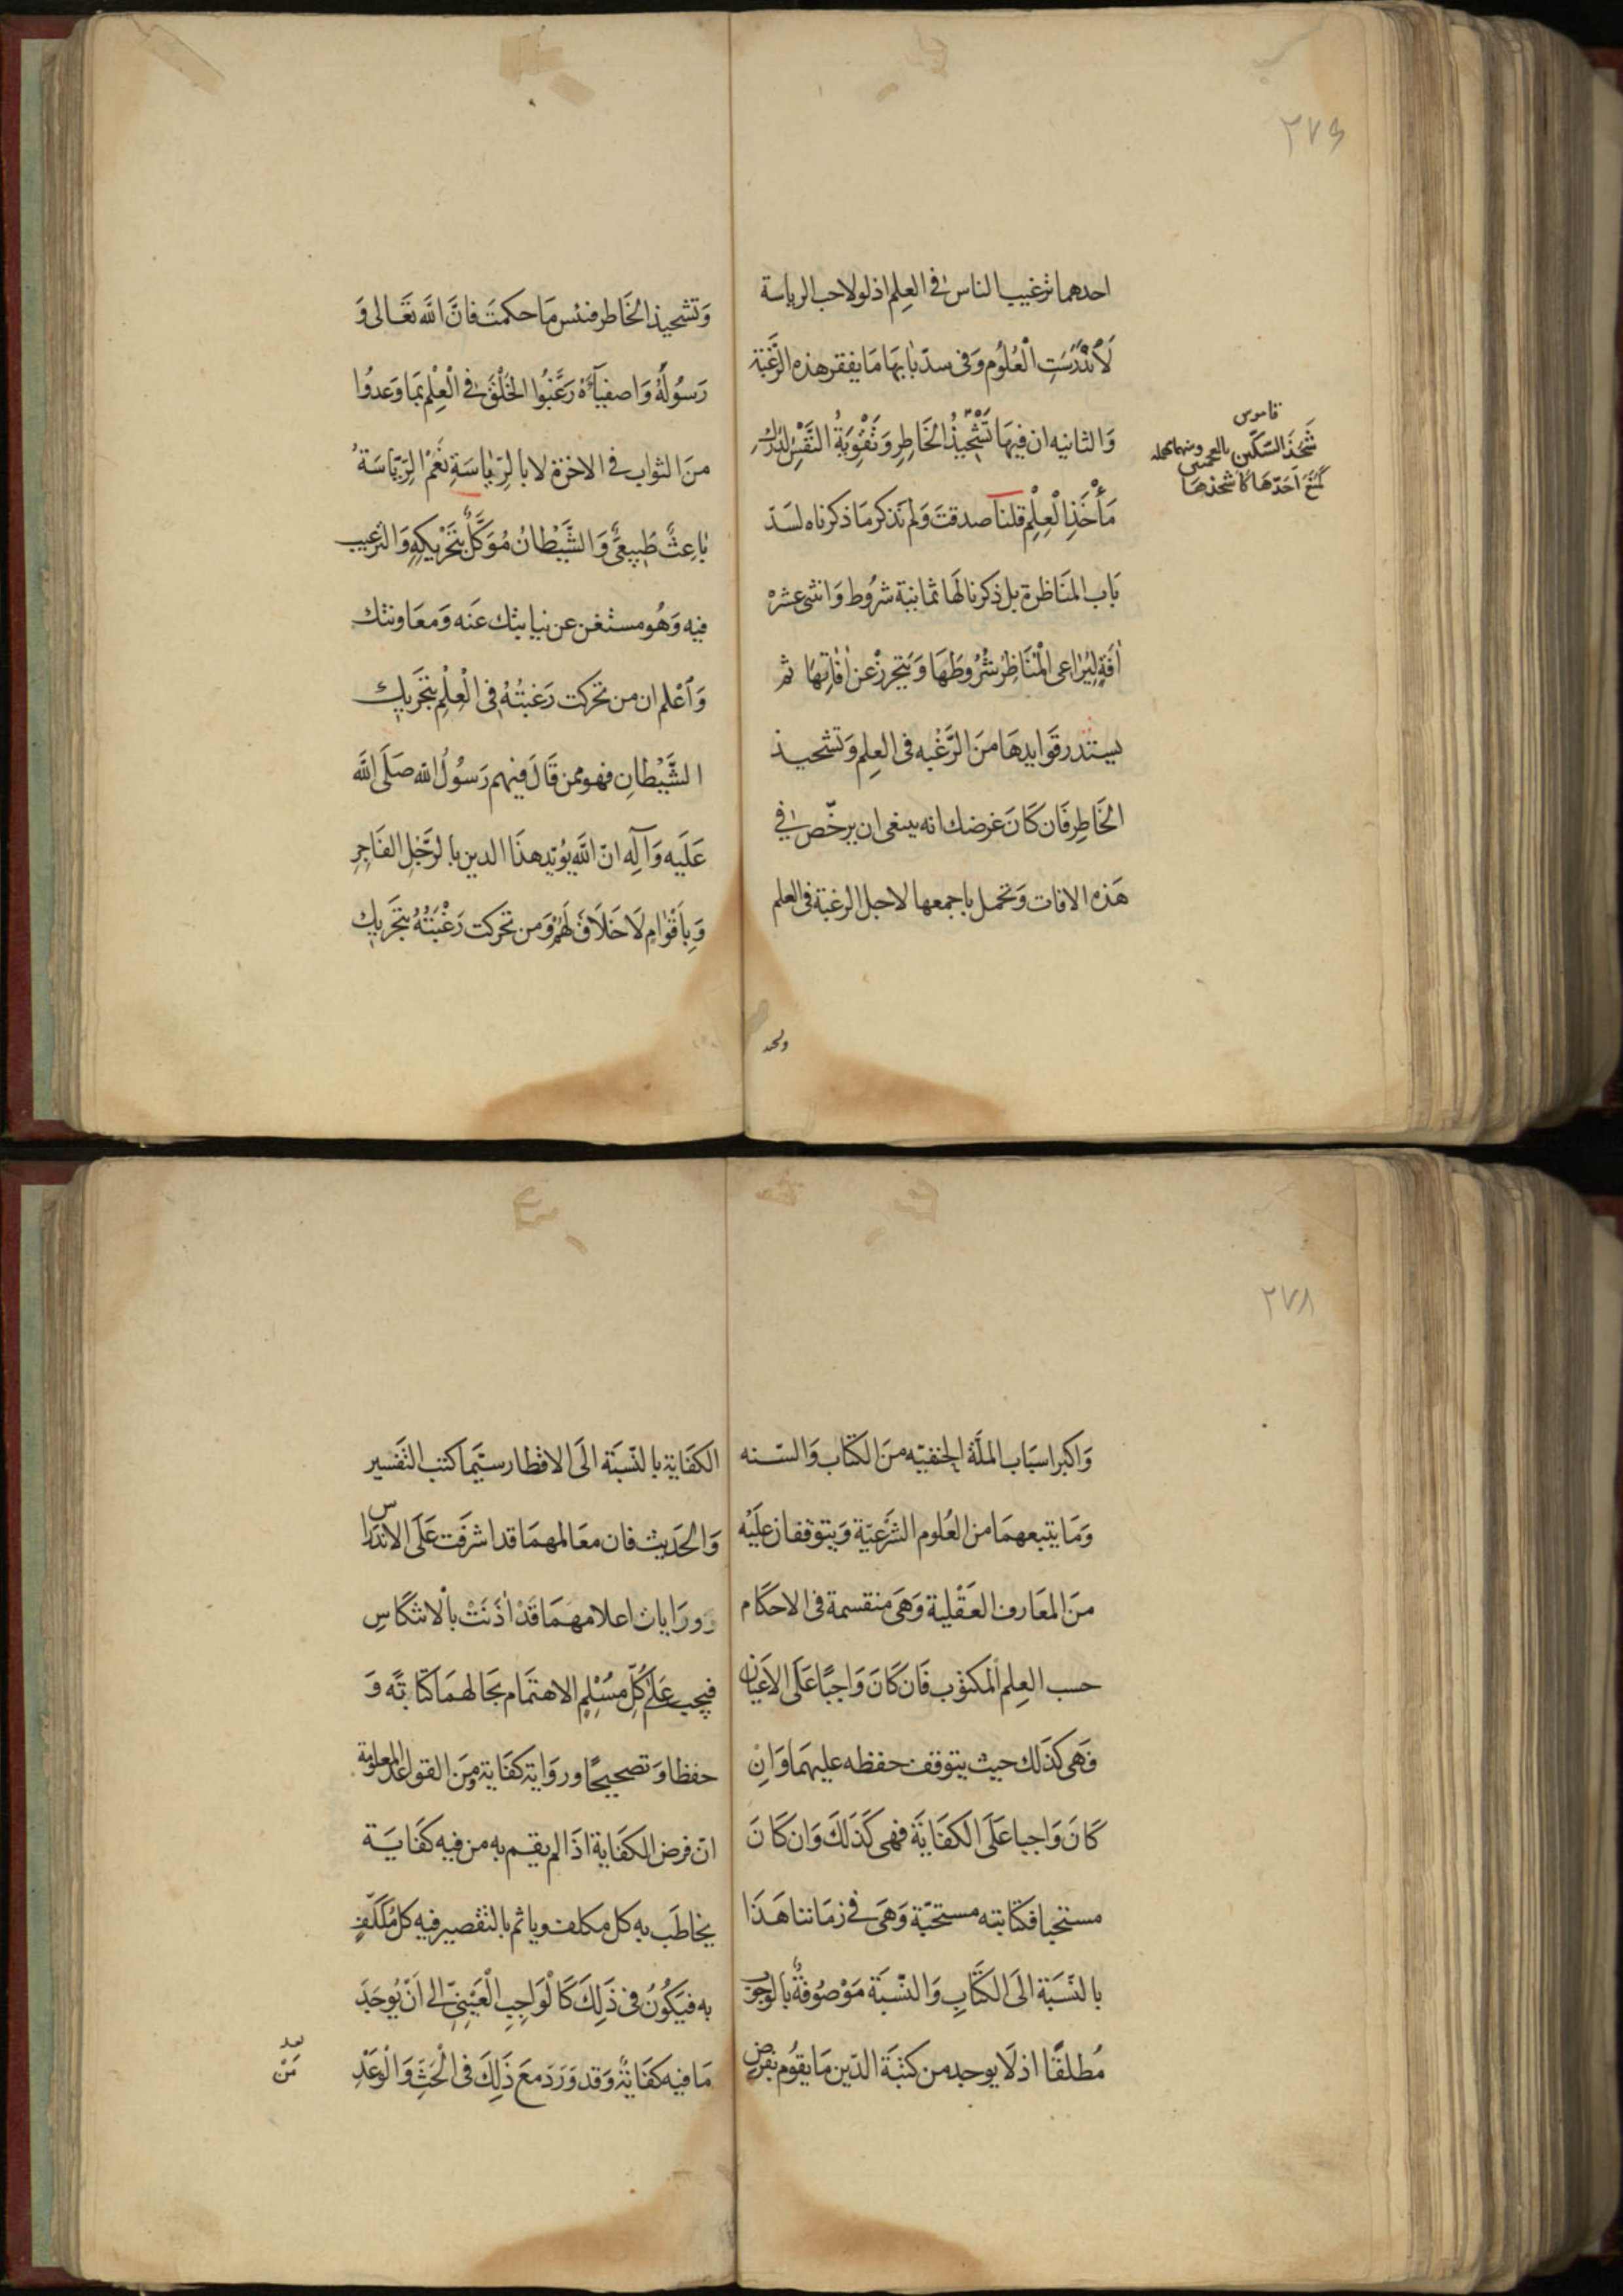 ٢٧٤
احدهما ترغيب الناس في العلم اذ لولا حب الرياسة
لَاَنْدَرَسَتِ الْعُلُوم وَفى سدّ بابِهَا مَا يفقر هذه الرَّغبَة
وَالثانيه ان فيهَا تَشْحِيْذُ الخَاطِرِ وَتَقْوِيَةُ النَّفْسِ لدَرْكِ
مَأْخَذِ الْعِلْمِ قلنا صدقتَ وَلم نذكر مَا ذكرناه لسَدّ
بَاب المنَاظرة بل ذكرنا لهَا ثمانية شرُوط وَاثنى عشره
اٰفَةٍ لِيُرٰاعى الْمُنَاظِرُ شُرُوطَهَا وَيَتَحرزْ عن اٰفٰاتِهَا ثم
يستدر فَوايدهَا منَ الرَّغْبه فى العِلم وَتشحيذ
الخَاطِر فَان كَانَ غرضك انه ينبغى ان يرخّص في
هَذه الافات وَتحمل باجمعها لاجل الرغبة فى العلم
قاموس
شَحَذَ السّكين
كَمَنَعَ اَحَدّهَا كاشحذهَا
وَتشحيذ الخَاطر فبئس مَا حكمتَ فَانَّ اللّه تعَالى وَ
رَسُولهُ وَاصفيَآءَهُ رَغَّبُوا الخَلْقَ فى الْعِلْم بمَا وَعدُوا
منَ الثواب فى الاخرة لا بالرِّيٰاسَةِ نَعَمْ الرِّيَاسَةُ
بٰاعِثٌ طَبِيعىٌّ وَالشَّيْطانُ مُوَكَّلٌ بِتَحْرِيكِهِ وَالترغيب
فيه وَهُو مستغن عن نيابتك عنَه وَمعَاونتك
وَٱعْلم ان من تحركت رَغبتُهُ فى الْعِلْم بتحَريكِ
الشَّيْطانِ فهو ممن قَالَ فيهم رَسُولُ اللّه صَلّى اللّه
عَلَيه وَآلِه انّ اللّه يُؤيّد هذَا الدين بالرَّجُلِ الفَاجِرِ
وَبِاَقْوٰامٍ لَا خَلَاقَ لَهُمْ وَمن تحَركت رَغْبَتُهُ بتحَريكِ
٢٧٨
وَاكبر اسبَاب الملّة الحنفيّه منَ الكتَاب وَالسّنه
وَمَا يتبعهمَا من العُلوم الشرَّعيّة وَيتوقفان عليْه
منَ المعَارف العَقْلية وَهىَ منقسمة فى الاحكَام
حسب العِلم المكتوب فَان كَانَ وَاجبًا عَلَى الاَعْيٰان
فَهى كذَلك حيث يتوقف حفظه عليهمَا وَاِنْ
كَانَ وَاجبا عَلَى الكفَايَة فهى كَذَلكَ وَان كَانَ
مستحبا فكتابته مستحبّة وَهىَ فى زمَاننا هَذَا
بالنّسبَة الىَ الكتَابِ وَالنّسبَة مَوْصُوفةٌ بالوجوب
مُطلقًا اذ لَا يوجد من كتبَة الدّين مَا يقُوم بفرض
الكفَاية بالنّسبَة الىَ الاقطار سيّما كتب التفسير
وَالحَديث فان معَالمهمَا قد اشرفَت عَلَى الاندراس
ورَايات اعلامهمَا قَدْ اٰذَنَتْ بالانتكَاسِ
فيجب عَلَى كُلِّ مُسْلِمٍ الاهتمَام بحَالهمَا كتابةً وَ
حفظا وَتصحيحًا ورِوَاية كفَاية وَمنَ القواعد المعلومة
انّ فرض الكفَاية اذَا لم يقم به من فيه كفَايَة
يخاطَب به كل مكلف وياثم بالتقصير فيه كل مُكَلَّفٍ
به فيَكُوْنُ فى ذَلِكَ كَالْوَاجِبِ الْعَيْنِىّ اِلى اَنْ يُوجَدَ
مَا فيه كفَايَةٌ وَقد وَرَدَ معَ ذَلِكَ فى الْحَثّ وَالْوَعْدِ